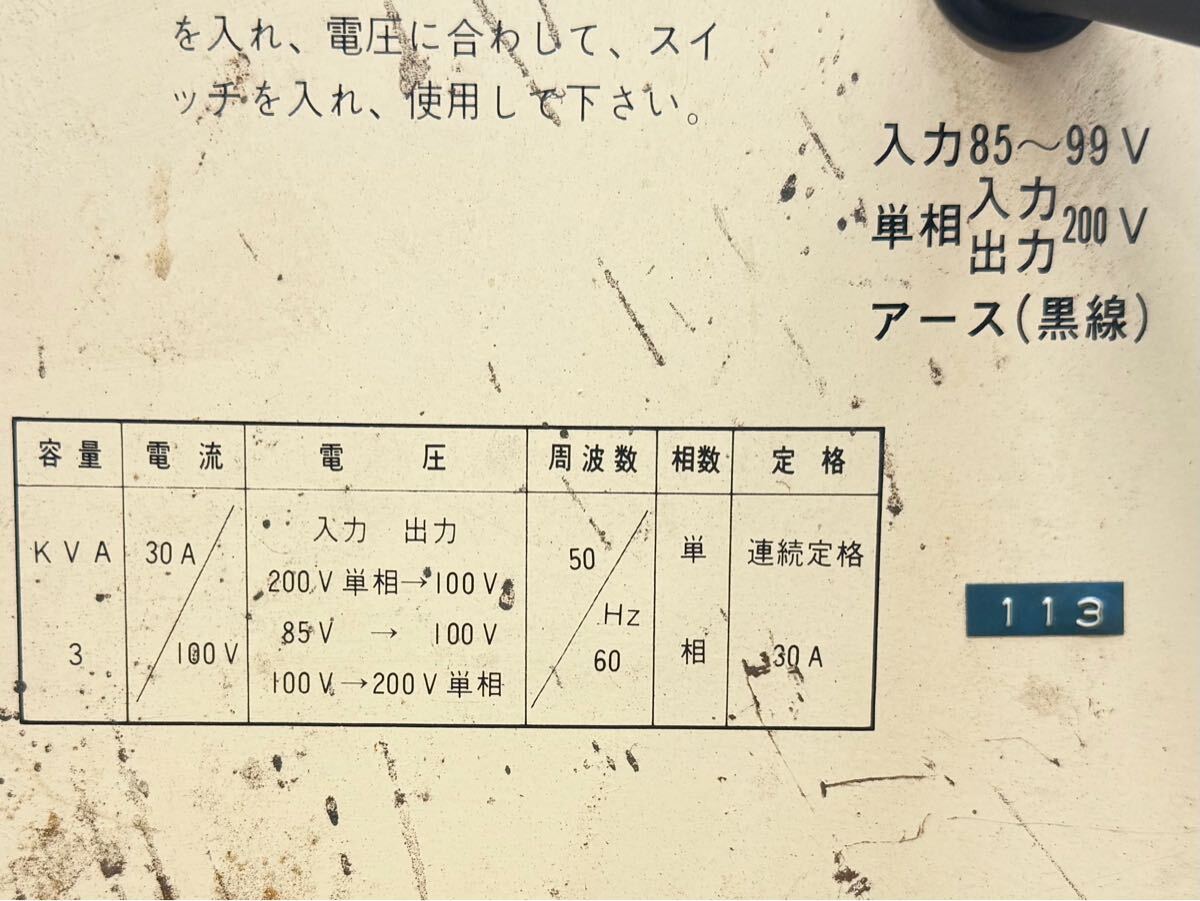 を入れ、電圧に合わして、スイ
ッチを入れ、使用して下さい。
入力85～99V
単相入力出力200V
アース(黒線)
容量 電流 電圧 周波数 相数 定格
KVA 3
30A/100V
入力 出力
200V単相→100V
85V → 100V
100V→200V単相
50/60Hz
単相
連続定格
30A
113